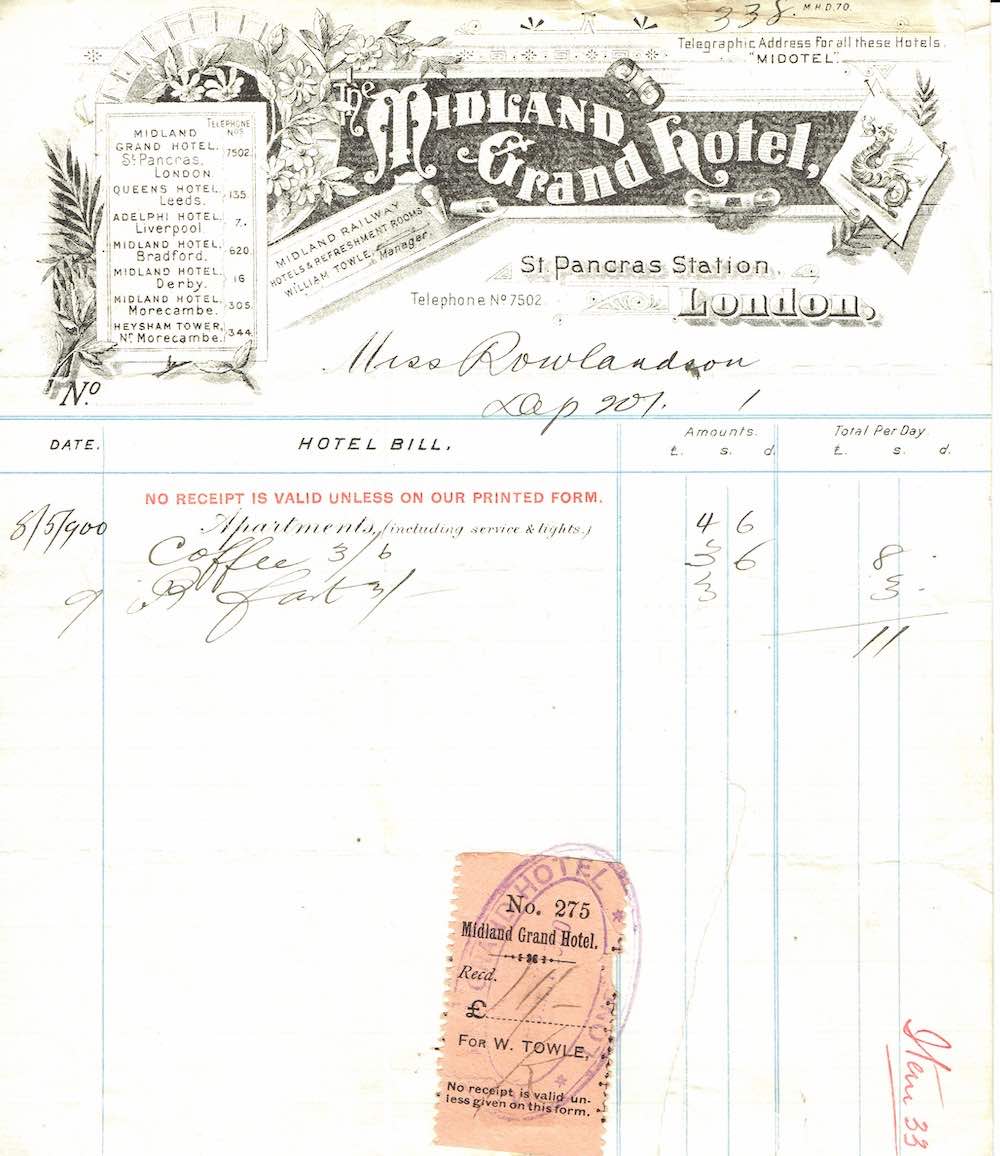 338. M.H.D.70.
Telegraphic Address For all these Hotels.
"MIDOTEL".
The Midland Grand Hotel,
TELEPHONE Nos
MIDLAND GRAND HOTEL, St Pancras, LONDON. 7502.
QUEENS HOTEL, Leeds. 135.
ADELPHI HOTEL, Liverpool 7.
MIDLAND HOTEL, Bradford. 620
MIDLAND HOTEL, Derby. 16
MIDLAND HOTEL, Morecambe. 305
HEYSHAM TOWER, Nr Morecambe. 344
MIDLAND RAILWAY
HOTELS & REFRESHMENT ROOMS
WILLIAM TOWLE, Manager.
St. Pancras Station,
Telephone No 7502. London,
Miss Rowlandson
No.
DATE. HOTEL BILL, Amounts. Total Per Day
£. s. d. £. s. d.
NO RECEIPT IS VALID UNLESS ON OUR PRINTED FORM.
8/5/900 Apartments, (including service & lights.) 4 6
Coffee 3/6 3 6 8 .
9 3/- 3 3 .
11
GRAND HOTEL * LON
No. 275
Midland Grand Hotel.
Recd.
£ 11/-
FOR W. TOWLE,
No receipt is valid un-
less given on this form.
Item 33